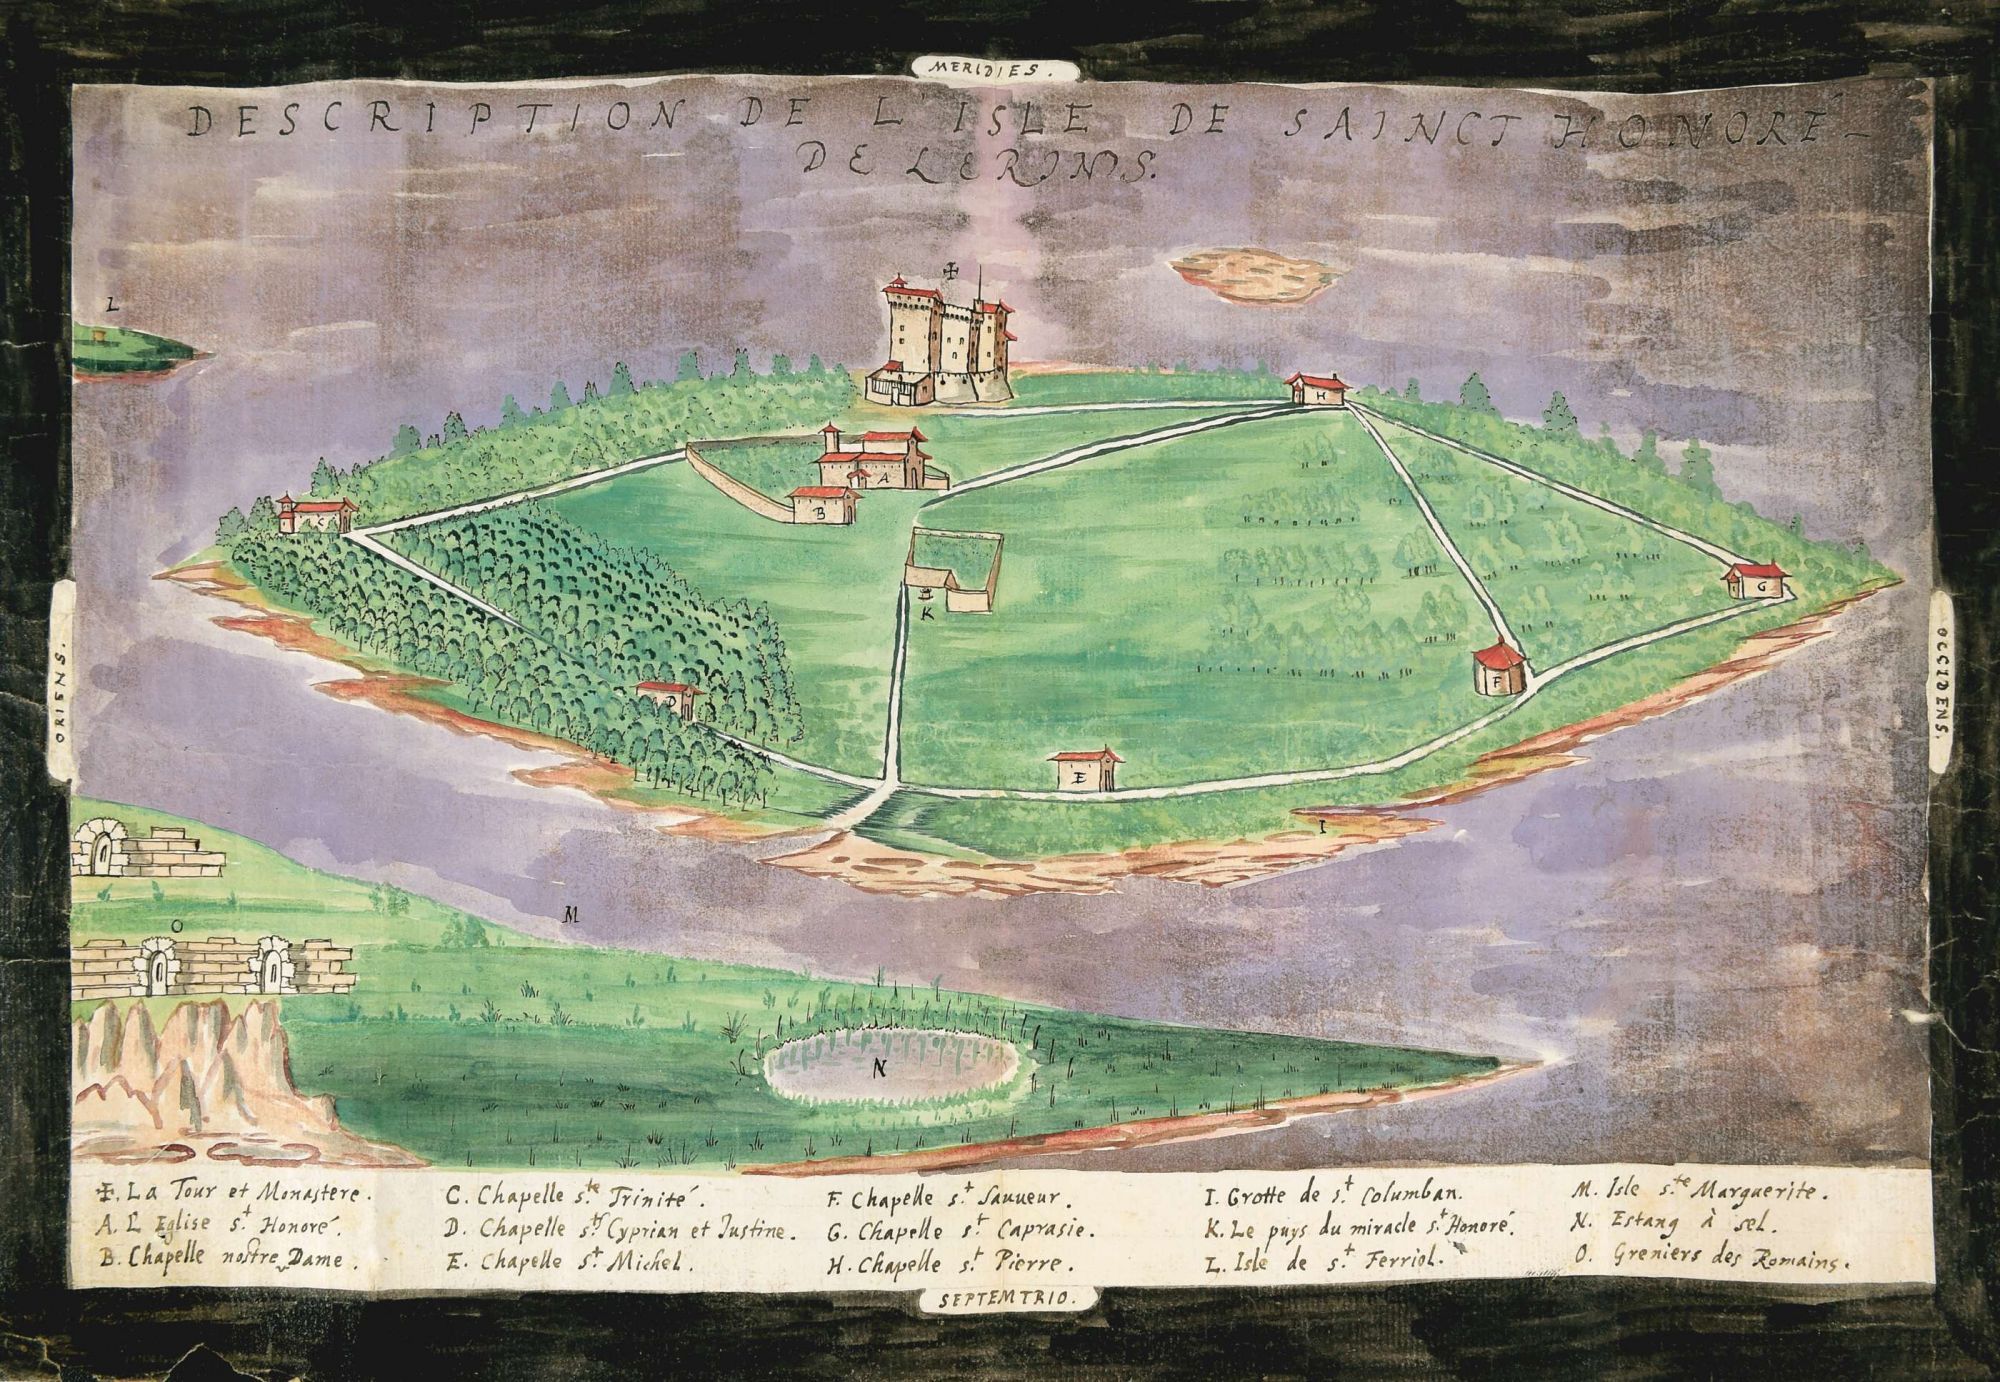 MERIDIES.
DESCRIPTION DE L'ISLE DE SAINCT HONORÉ-
DE LERINIS.
✠
L
H
A
B
C
G
K
F
D
ORIENS.
OCCIDENS.
E
I
M
O
N
✠. La Tour et Monastere.
A. L'Eglise s.t Honoré.
B. Chapelle nostre Dame.
C. Chapelle s.te Trinité.
D. Chapelle s.ts Cyprian et Iustine.
E. Chapelle s.t Michel.
F. Chapelle s.t Sauueur.
G. Chapelle s.t Caprasie.
H. Chapelle s.t Pierre.
I. Grotte de s.t Columban.
K. Le puys du miracle s.t Honoré.
L. Isle de s.t Ferriol.
M. Isle s.te Marguerite.
N. Estang à sel.
O. Greniers des Romains.
SEPTEMTRIO.